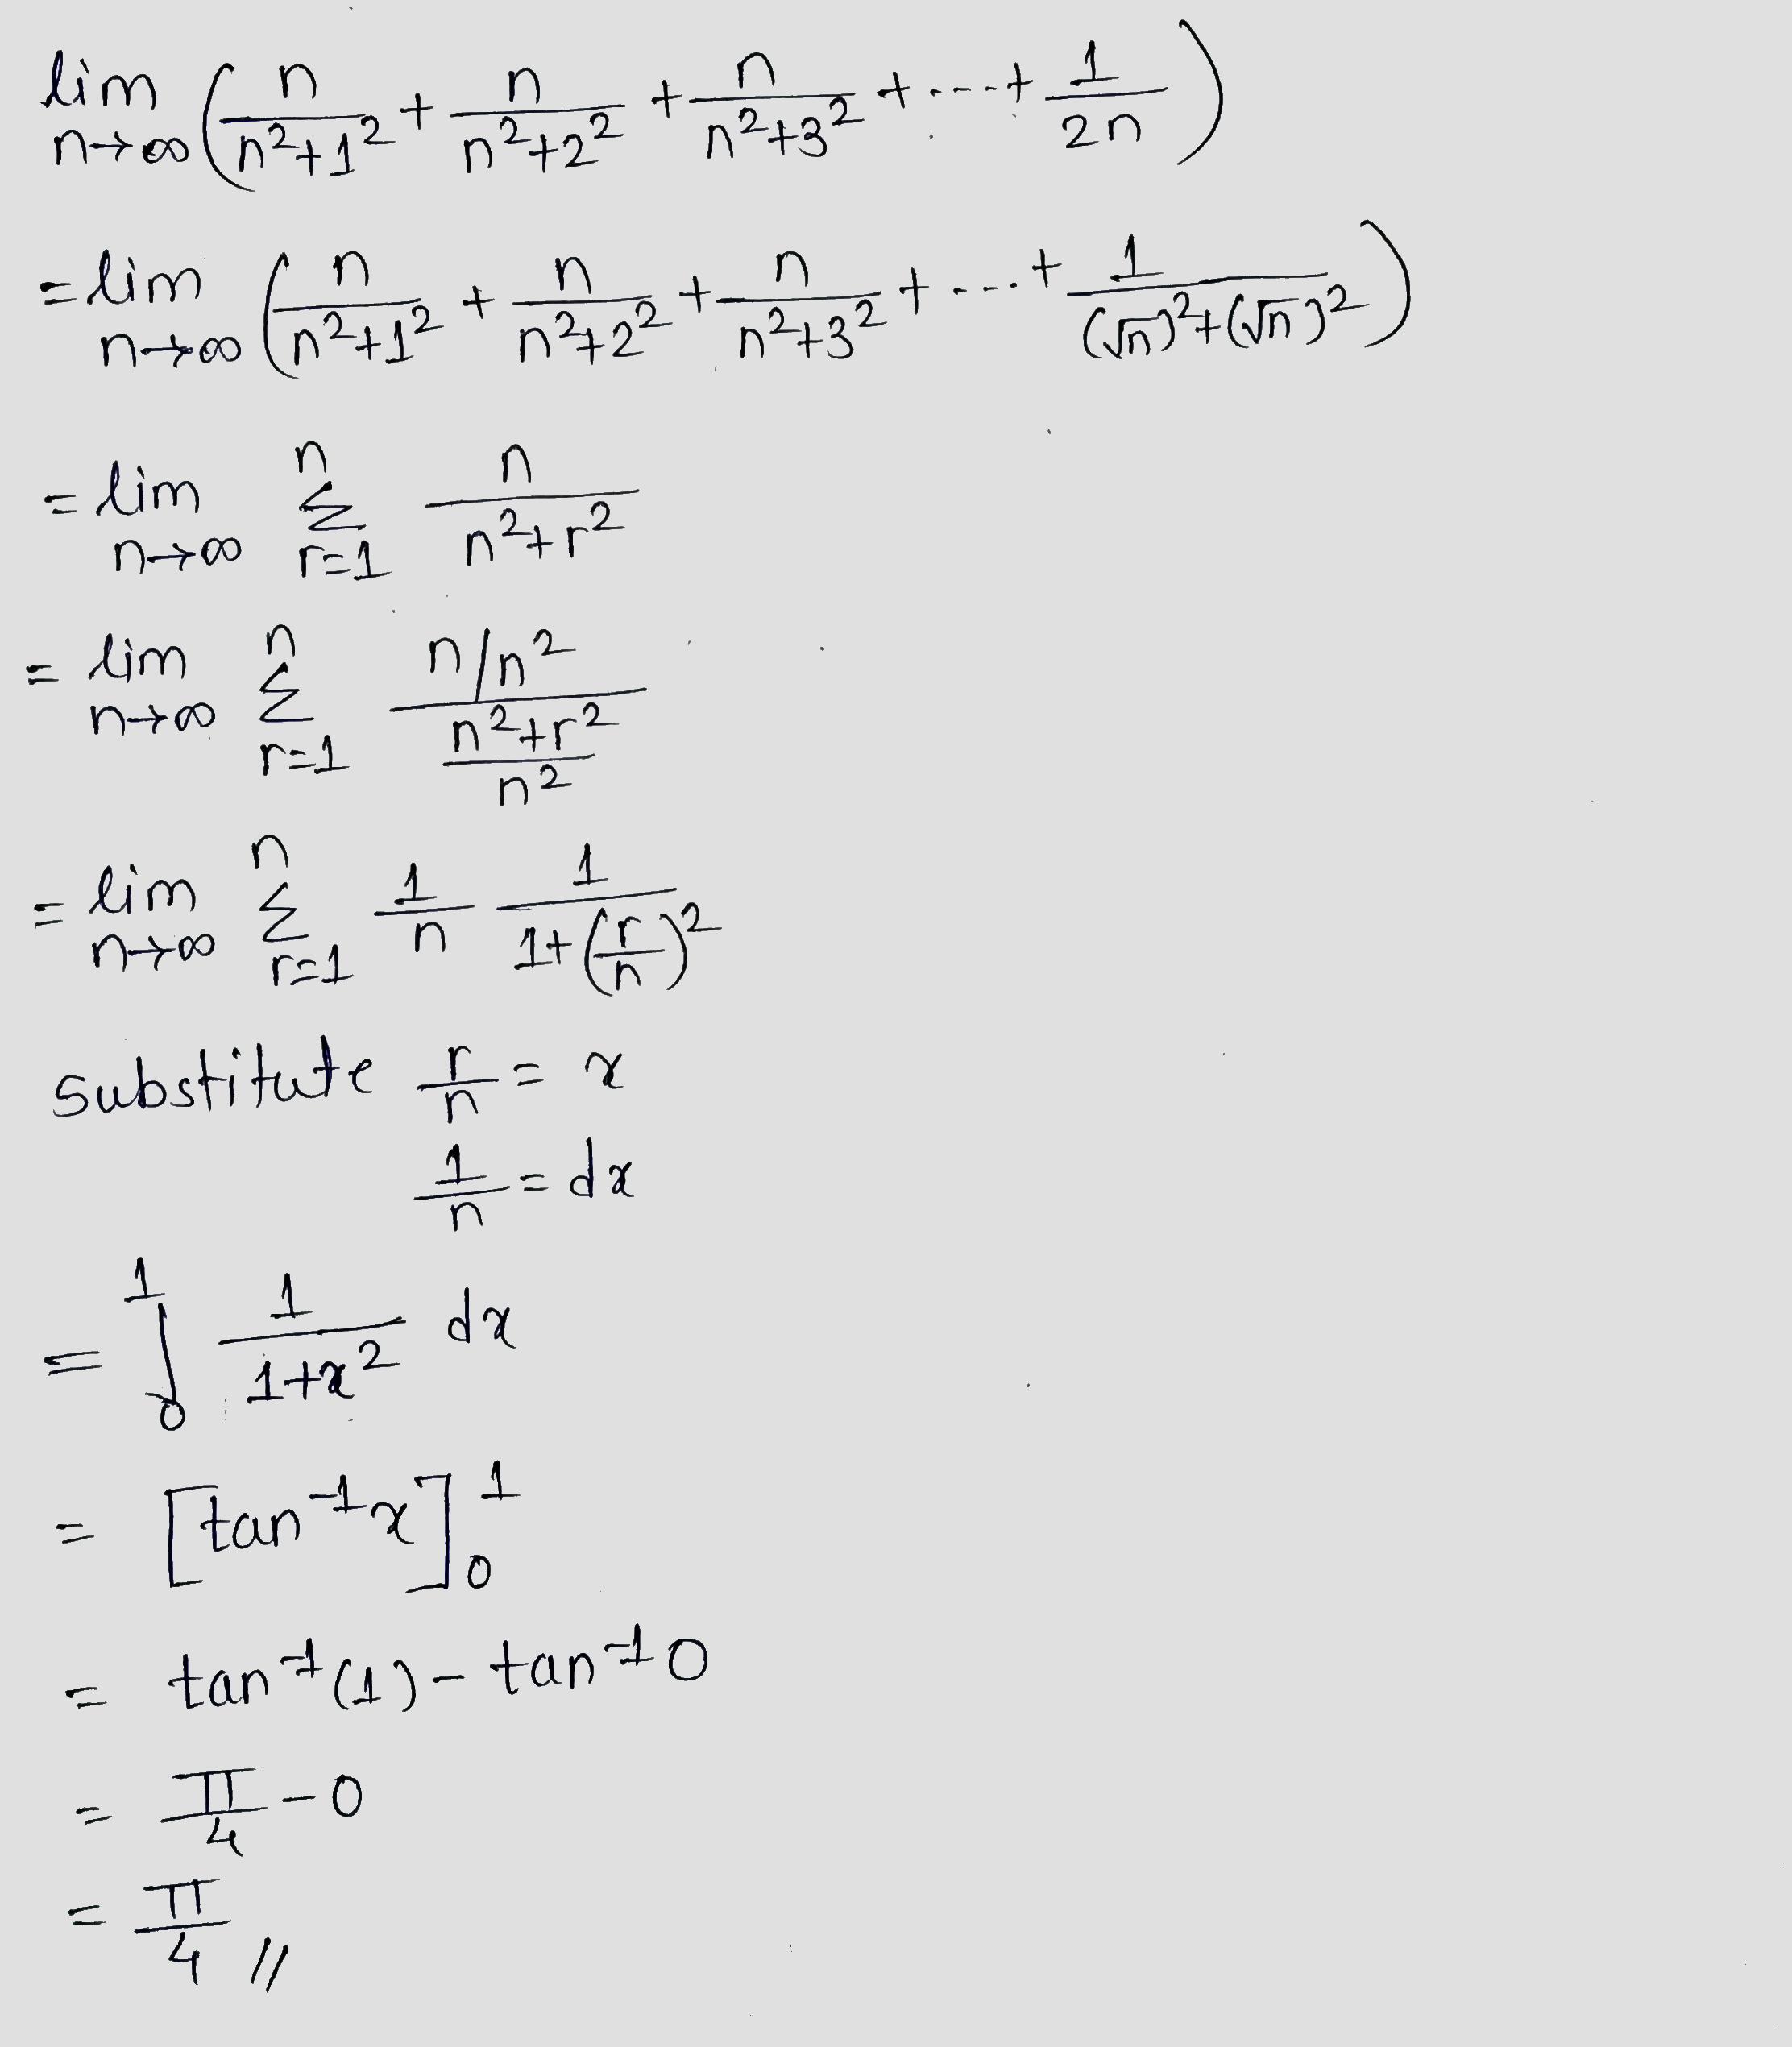 lim n→∞ (n/(n²+1²) + n/(n²+2²) + n/(n²+3²) + ---- + 1/2n)
= lim n→∞ (n/(n²+1²) + n/(n²+2²) + n/(n²+3²) + ---- + 1/((√n)²+(√n)²))
= lim n→∞ Σ r=1 n n/(n²+r²)
= lim n→∞ Σ r=1 n (n/n²)/((n²+r²)/n²)
= lim n→∞ Σ r=1 n 1/n 1/(1+(r/n)²)
substitute r/n = x
1/n = dx
= ∫₀¹ 1/(1+x²) dx
= [tan⁻¹x]₀¹
= tan⁻¹(1) - tan⁻¹0
= π/4 - 0
= π/4 //